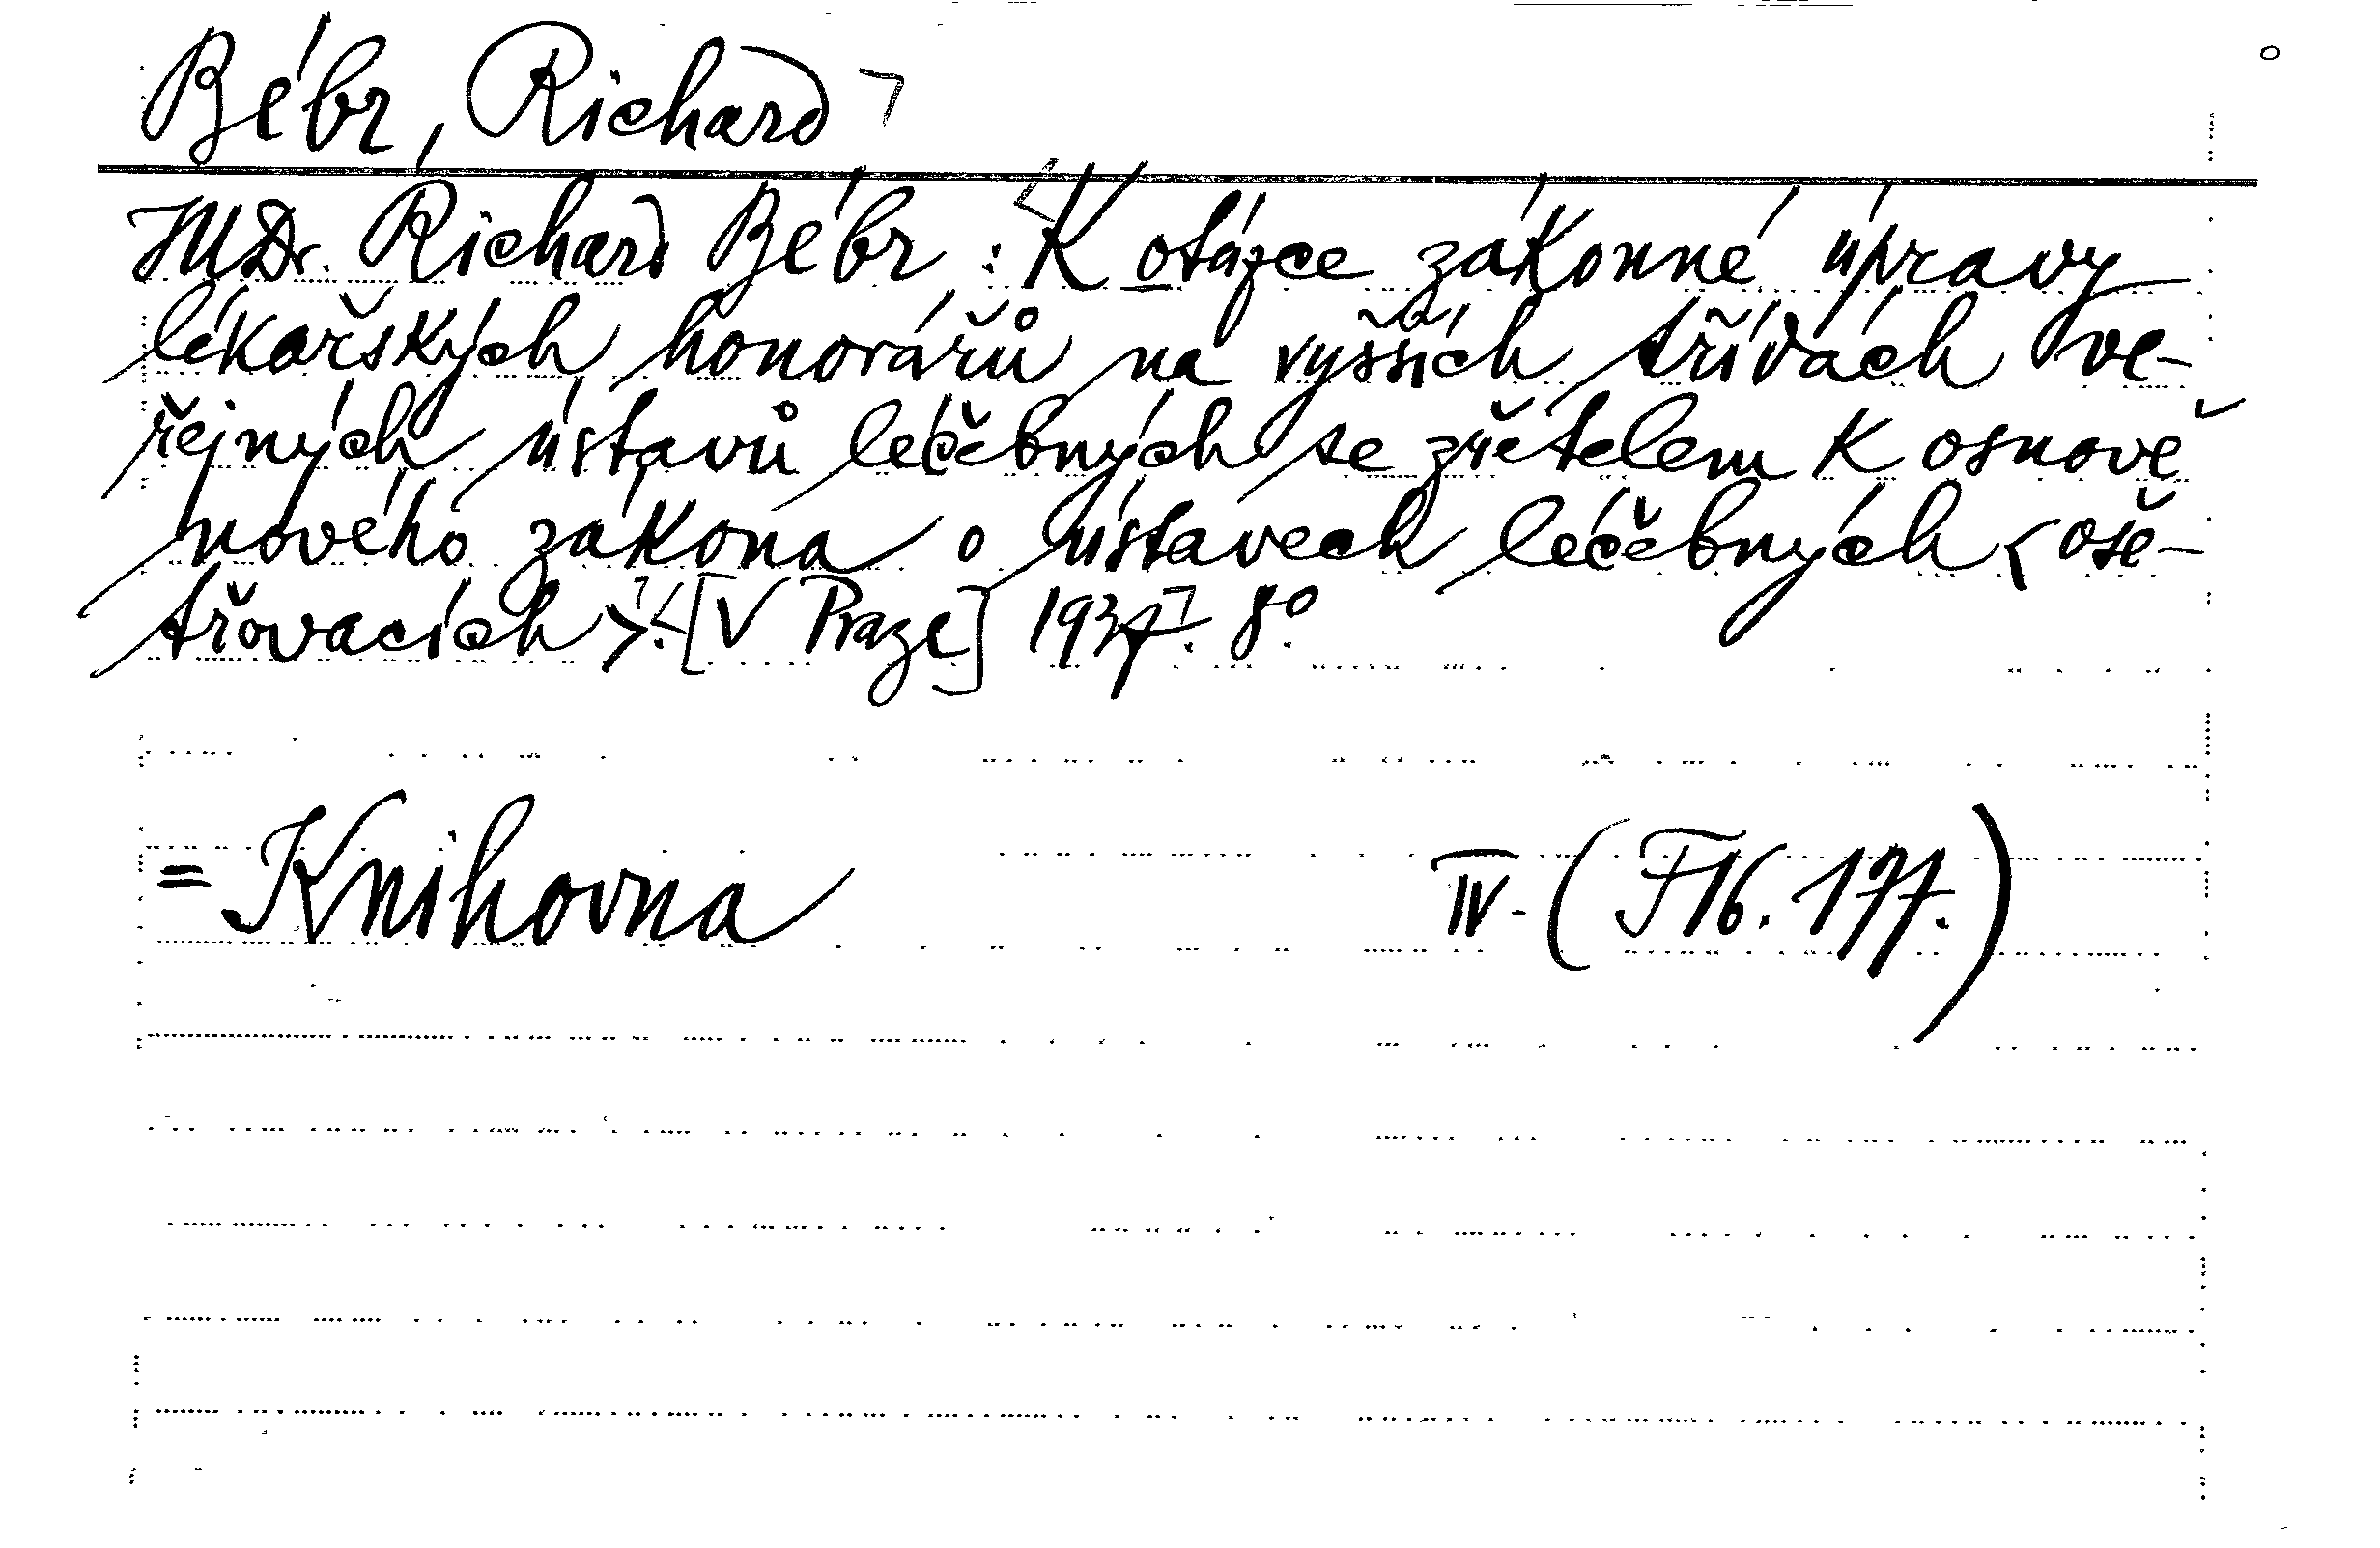 Bébr, Richard
MDr. Richard Bébr : K otázce zákonné úpravy
lékařských honorářů na vyšších třídách ve-
řejných ústavů léčebných se zřetelem k osnově
nového zákona o ústavech léčebných < oše-
třovacích >. [V Praze] 1937. 8°.
= Knihovna IV. (F16. 177.)